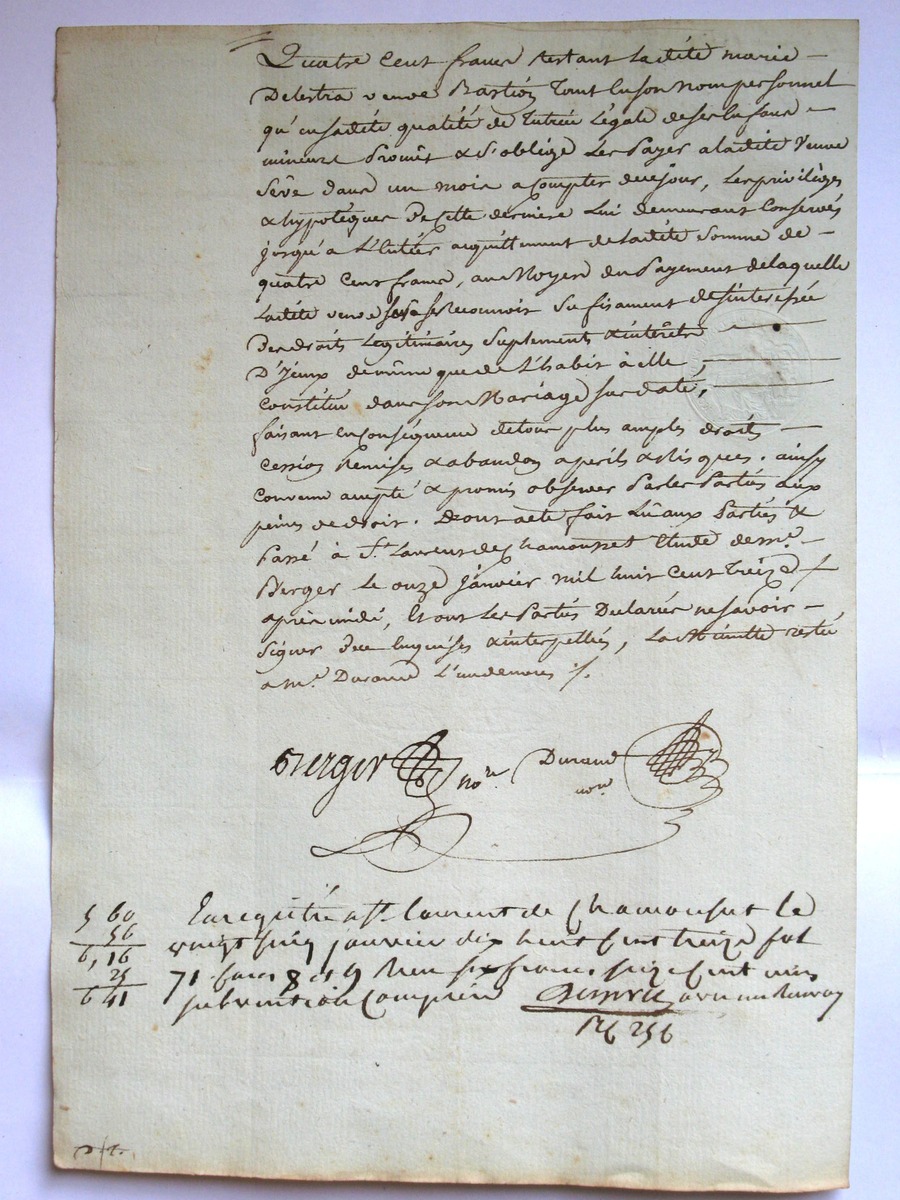 Quatre cent francs restant ladite marie
Delestra veuve Bastion tant en son nom personnel
qu'en sadite qualité de Tutrice Légale de ses enfans
mineurs Promet & s'oblige Les Payer a ladite Veuve
Sêve dans un mois a compter de ce jour, Les privilèges
& hypotèques de cette derniere Lui demeurant Conservés
jusqu'a L'Entier acquittement de ladite Somme de
quatre Cent francs, au Moyen du Payement de laquelle
Ladite veuve Reconnoit Sufisament desinteressée
Des droits Legitimaires Suplement & interêts
D'Yeux de même que de L'habit à elle,
Constitué dans son Mariage sus daté,
faisant en Conséquence de tous plus amples droits
cession Remises & abandon a perils & Risques. ainsy
Convenu accepté & promis observer Par les Parties aux
peines de droit. Dont acte fait Lû aux Parties &
Passé à St. Laurent de Chamousset Etude de me.
Berger Le onze janvier mil huit Cent Treize
après midi, Et ont Les Parties Declarées ne savoir
Signer de ce Enquises & interpellées, La Minutte restée
a me. Durand L'un de nous
Berger nore. Durand
nore
5 60
56
6,16
25
6 41
Enregistré a St. laurent de Chamousset le
vingt cinq janvier dix huit Cent treize fol
71 Cases 8 et 9 Reçu six francs seize Cent mes
subvention Comprise
256